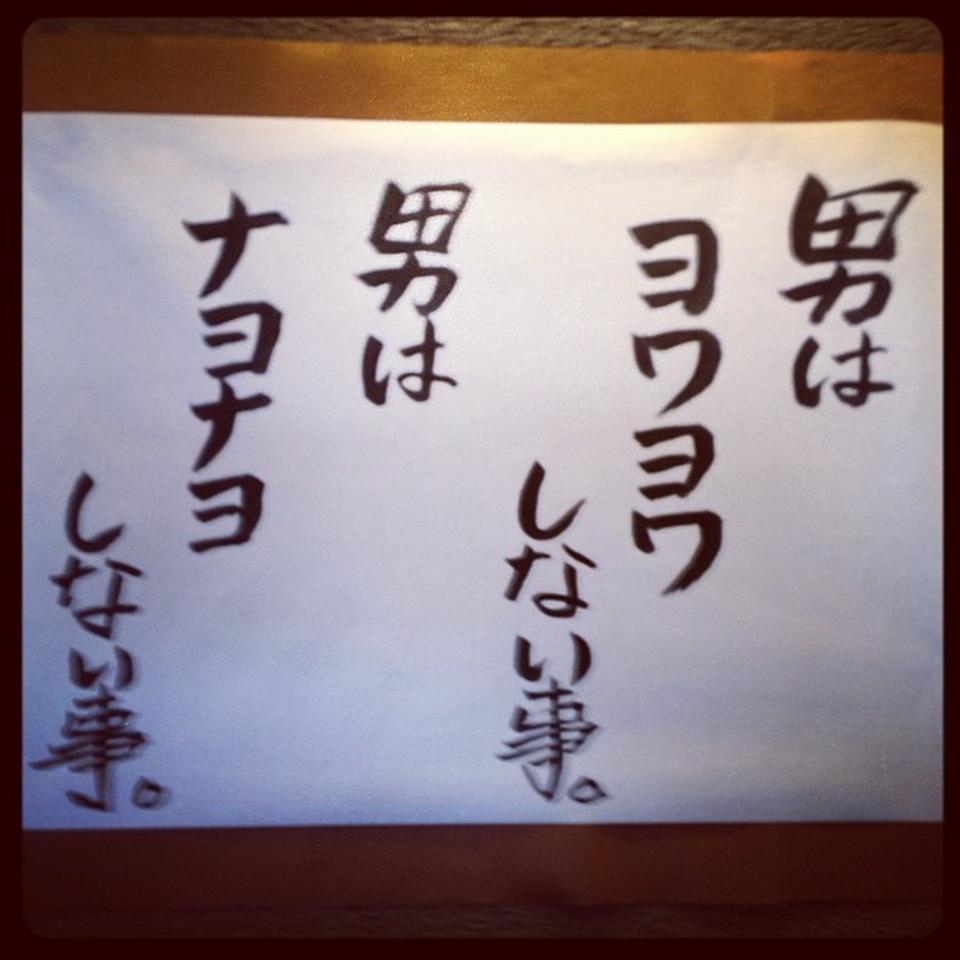 男は
ヨワヨワ
しない事。
男は
ナヨナヨ
しない事。